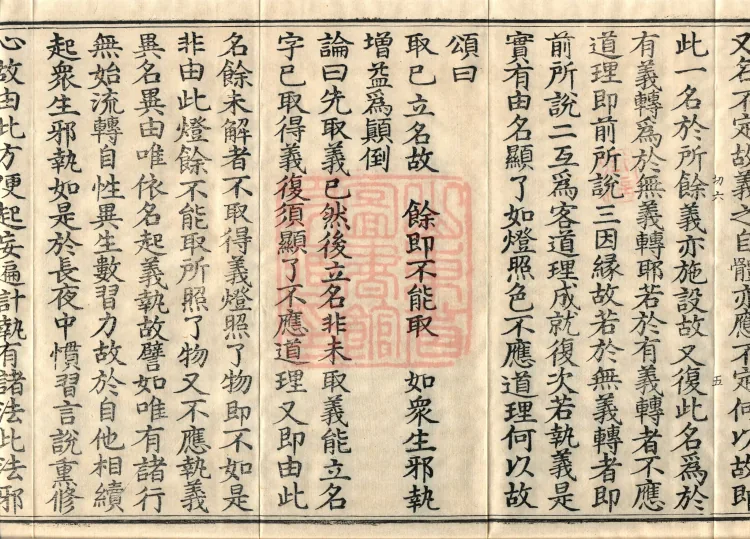 又名不定故義之自體亦應不定何以故即
初六
五
此一名於所餘義亦施設故又復此名爲於
有義轉爲於無義轉耶若於有義轉者不應
道理即前所說三因緣故若於無義轉者即
前所說二互爲客道理成就復次若執義是
實有由名顯了如燈照色不應道理何以故
頌曰
取已立名故　餘即不能取　如衆生邪執
增益爲顛倒
論曰先取義已然後立名非未取義能立名
字已取得義復須顯了不應道理又即由此
名餘未解者不取得義燈照了物即不如是
非由此燈餘不能取所照了物又不應執義
異名異由唯依名起義執故譬如唯有諸行
無始流轉自性異生數習力故於自他相續
起衆生邪執如是於長夜中慣習言說熏修
心故由此方便起妄遍計執有諸法此法邪